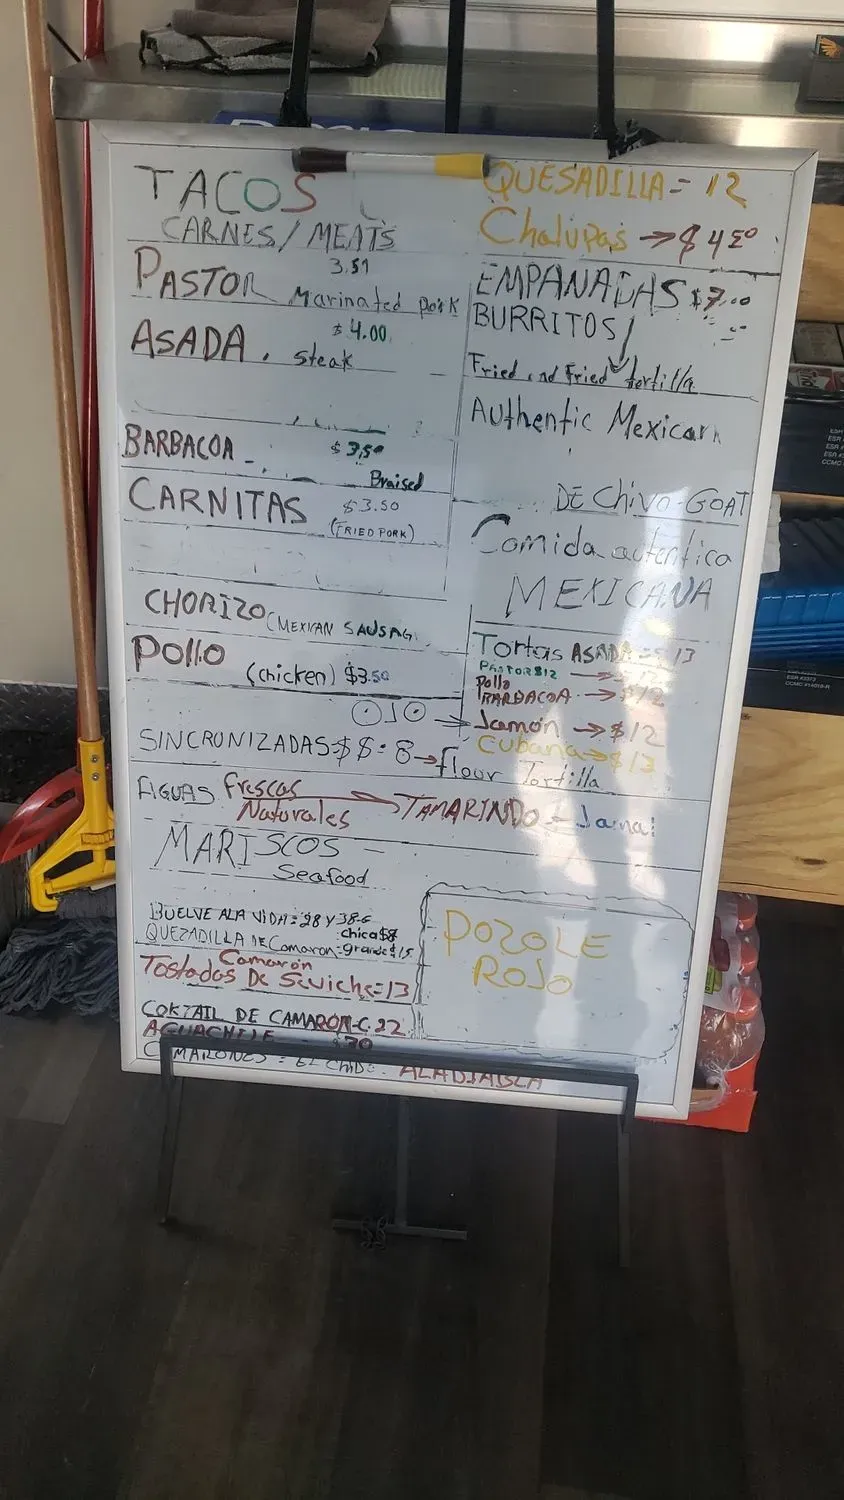 TACOS
CARNES/MEATS
PASTOR Marinated pork
ASADA. steak $4.00
BARBACOA - $3.50
Braised
CARNITAS $3.50
(FRIED PORK)
CHORIZO (MEXICAN SAUSAG
Pollo (chicken) $3.50
SINCRONIZADAS=$$=8→flour Tortilla
AGUAS frescas
Naturales → TAMARINDO - Jamai
MARISCOS -
Seafood
BUELVE ALA VIDA=28 Y 38-G
chica$8
QUEZADILLA DE Camaron=grande$15
Camarón
Tostadas De Seviche=13
COKTAIL DE CAMARON-C.22
AGUACHILE $20
CAMARONES = EL CHIDO. ALADIABLA
QUESADILLA = 12
Chalupas → $4 50
EMPANADAS $7.00
BURRITOS
Fried and Fried tortilla
Authentic Mexican
DE Chivo-GOAT
Comida autentica
MEXICANA
Tortas ASADA = $13
PASTOR$12
Pollo
BARBACOA → $12
Jamón → $12
Cubana → $13
POZOLE
ROJO